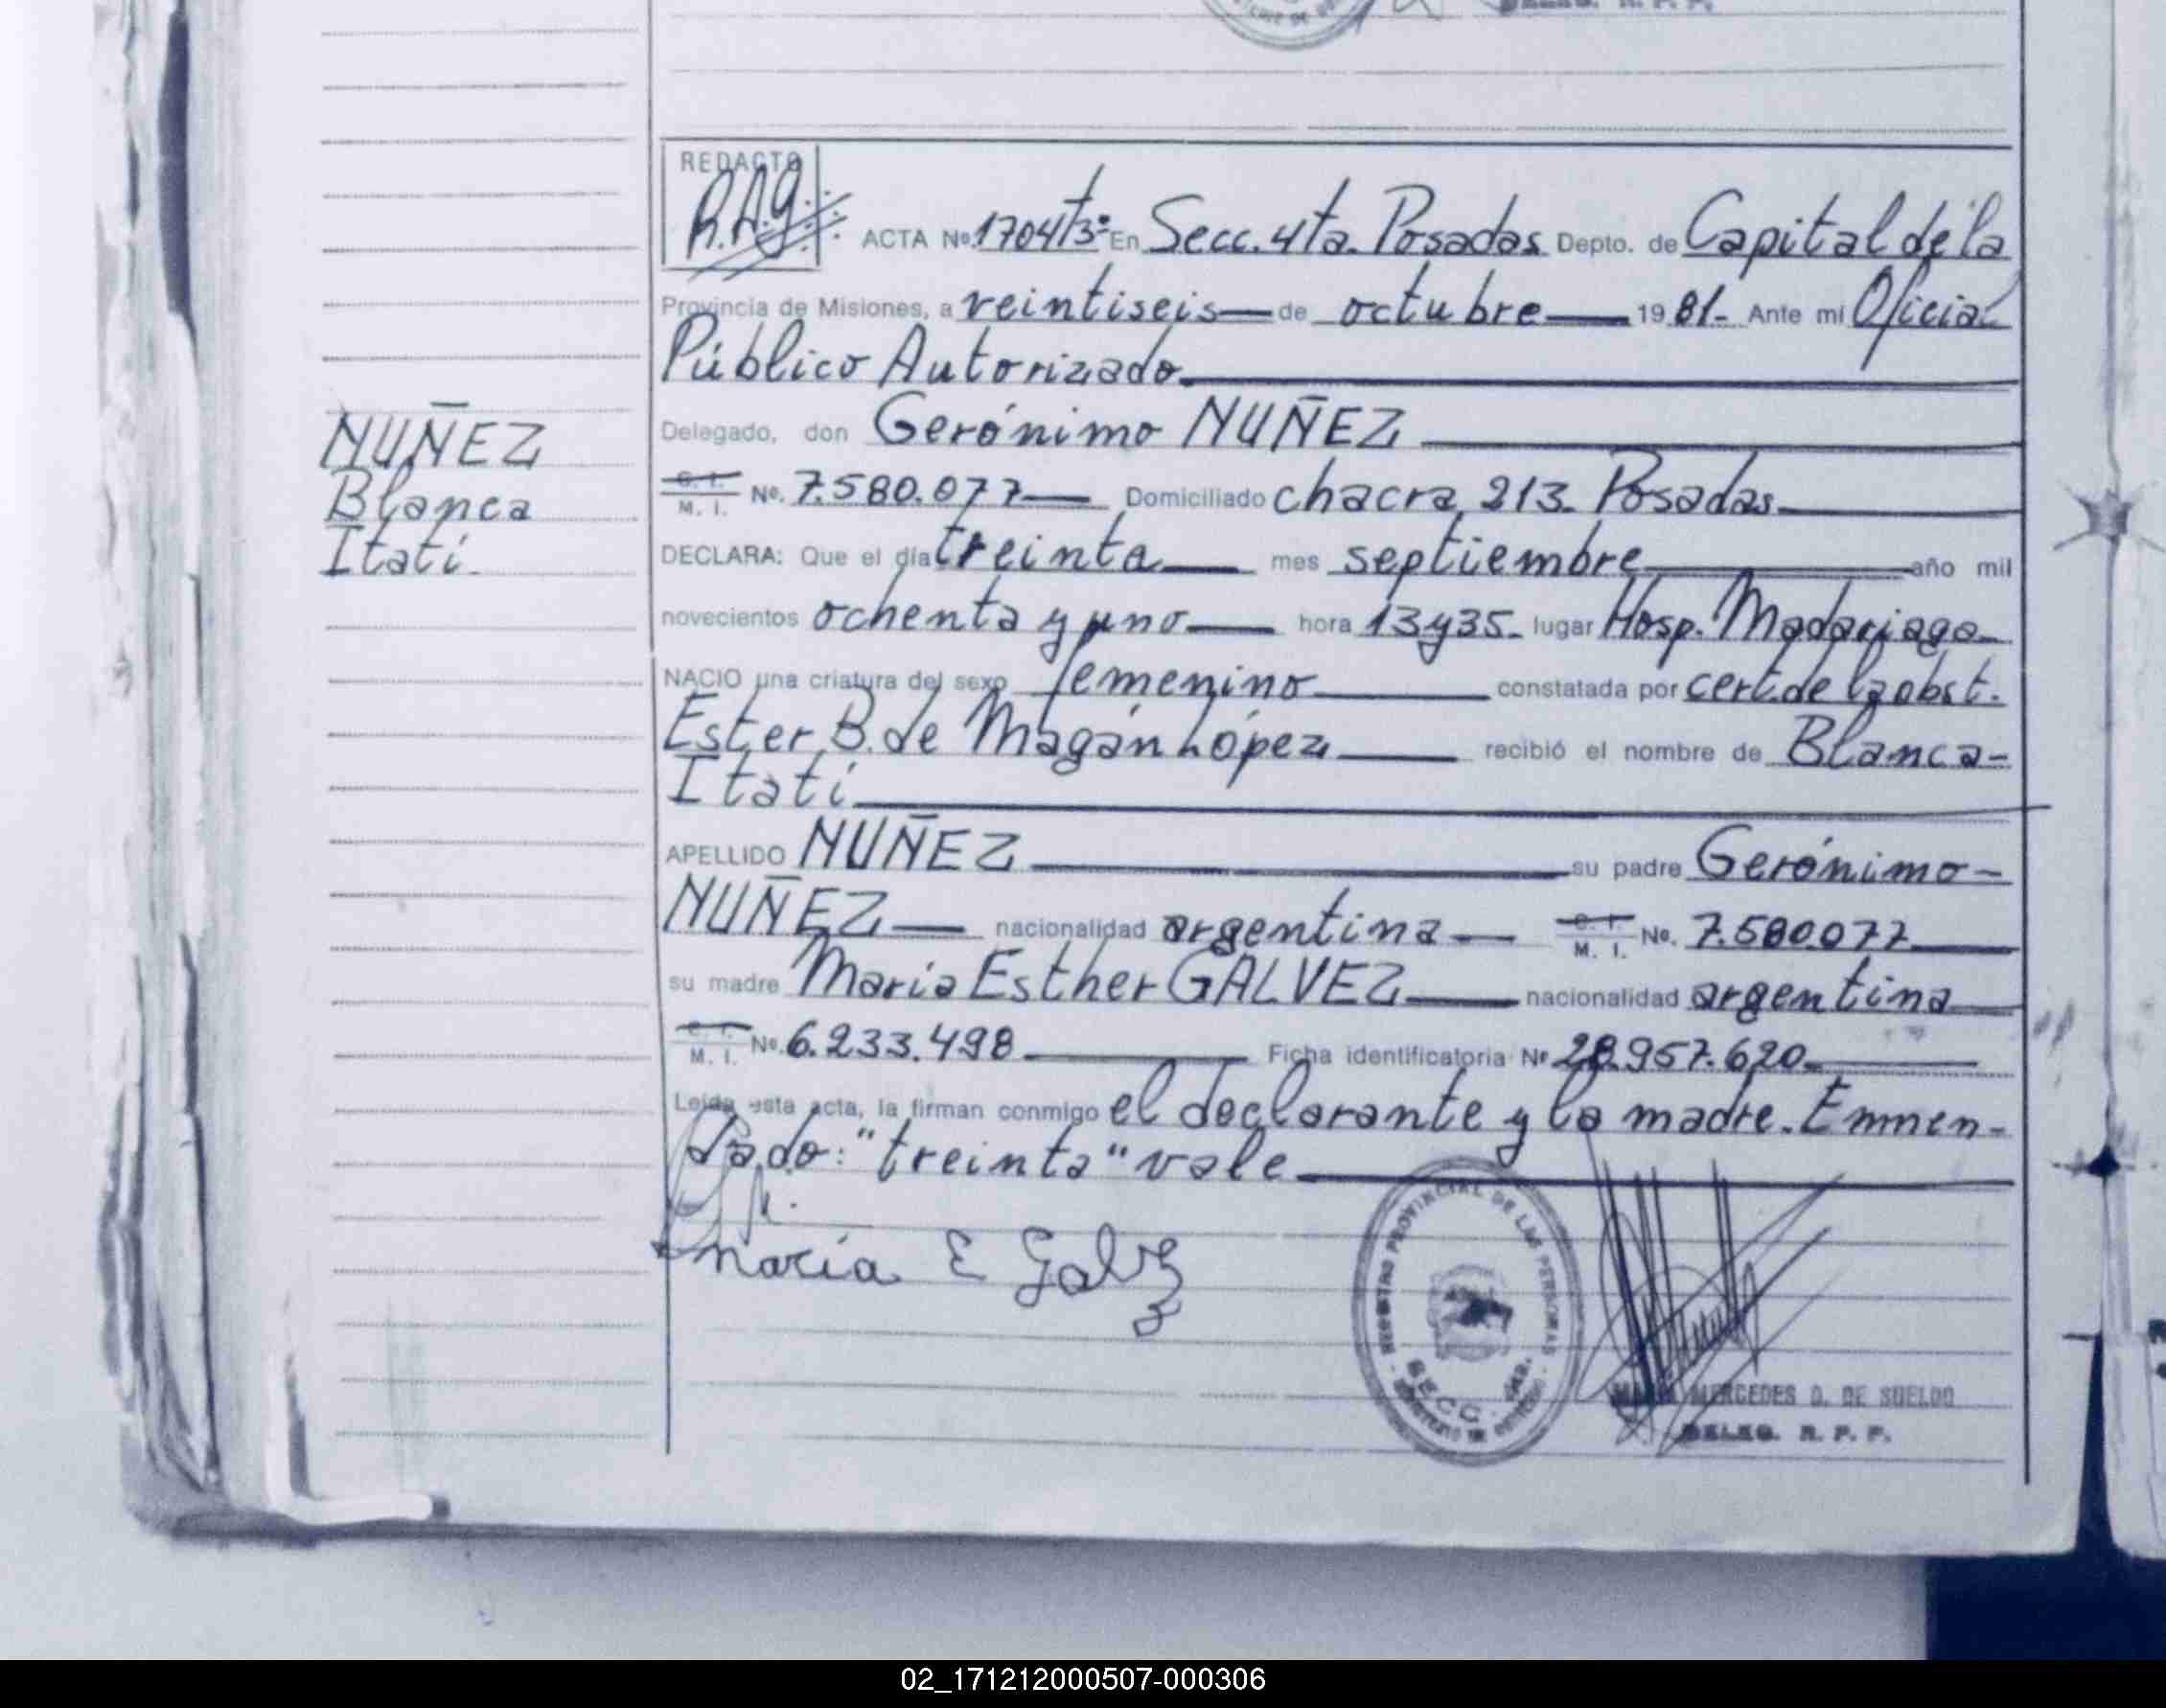 REDACTO
R.A.g.
ACTA Nº 1704Tº3º En Secc. 4ta. Posadas Depto. de Capital de la
Provincia de Misiones, a veintiseis de octubre 1981- Ante mí Oficial
Público Autorizado
Delegado, don Gerónimo NUÑEZ
NUÑEZ
Blanca
Itatí
C. I.
M. I. Nº. 7.580.077 Domiciliado chacra 213. Posadas
DECLARA: Que el día treinta mes septiembre año mil
novecientos ochenta y uno hora 13y35. lugar Hosp. Madariaga
NACIO una criatura del sexo femenino constatada por cert. de la obst.
Ester B. de Magán López recibió el nombre de Blanca-
Itatí
APELLIDO NUÑEZ su padre Gerónimo-
NUÑEZ nacionalidad argentina C. I. M. I. Nº. 7.580.077
su madre María Esther GALVEZ nacionalidad argentina
C. I.
M. I. Nº. 6.233.498 Ficha identificatoria Nº 28.957.620
Leída esta acta, la firman conmigo el declarante y la madre. Enmen-
dado: "treinta" vale
maria E Galvez
REGISTRO PROVINCIAL DE LAS PERSONAS
SECC.
MERCEDES D. DE SUELDO
DELEG. R. P. P.
02_171212000507-000306